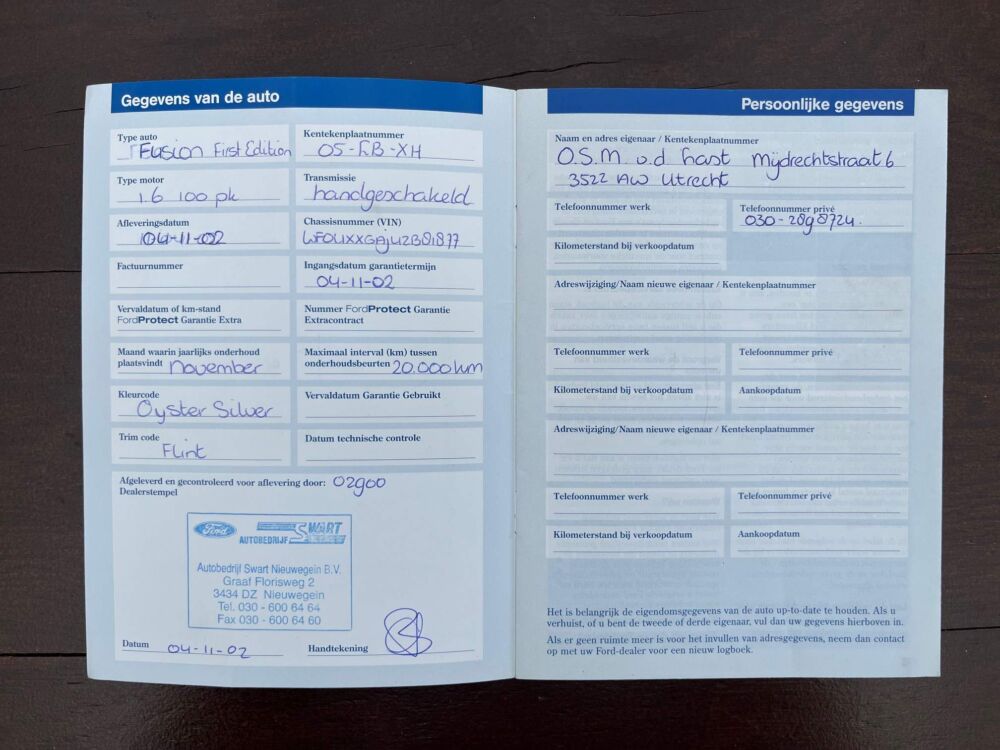 Gegevens van de auto
Type auto
Fusion First Edition
Kentekenplaatnummer
05-FB-XH
Type motor
1.6 100 pk
Transmissie
handgeschakeld
Afleveringsdatum
04-11-02
Chassisnummer (VIN)
WF0UXXGAJU2B81877
Factuurnummer
Ingangsdatum garantietermijn
04-11-02
Vervaldatum of km-stand
FordProtect Garantie Extra
Nummer FordProtect Garantie
Extracontract
Maand waarin jaarlijks onderhoud
plaatsvindt november
Maximaal interval (km) tussen
onderhoudsbeurten 20.000 km
Kleurcode
Oyster Silver
Vervaldatum Garantie Gebruikt
Trim code
Flint
Datum technische controle
Afgeleverd en gecontroleerd voor aflevering door: 02900
Dealerstempel
Ford
SWART
AUTOBEDRIJF
Autobedrijf Swart Nieuwegein B.V.
Graaf Florisweg 2
3434 DZ Nieuwegein
Tel. 030 - 600 64 64
Fax 030 - 600 64 60
Datum 04-11-02 Handtekening
Persoonlijke gegevens
Naam en adres eigenaar / Kentekenplaatnummer
O.S.M. v.d. hast Mijdrechtstraat 6
3522 AW Utrecht
Telefoonnummer werk
Telefoonnummer privé
030-2898724.
Kilometerstand bij verkoopdatum
Adreswijziging/Naam nieuwe eigenaar / Kentekenplaatnummer
Telefoonnummer werk
Telefoonnummer privé
Kilometerstand bij verkoopdatum
Aankoopdatum
Adreswijziging/Naam nieuwe eigenaar / Kentekenplaatnummer
Telefoonnummer werk
Telefoonnummer privé
Kilometerstand bij verkoopdatum
Aankoopdatum
Het is belangrijk de eigendomsgegevens van de auto up-to-date te houden. Als u
verhuist, of u bent de tweede of derde eigenaar, vul dan uw gegevens hierboven in.
Als er geen ruimte meer is voor het invullen van adresgegevens, neem dan contact
op met uw Ford-dealer voor een nieuw logboek.